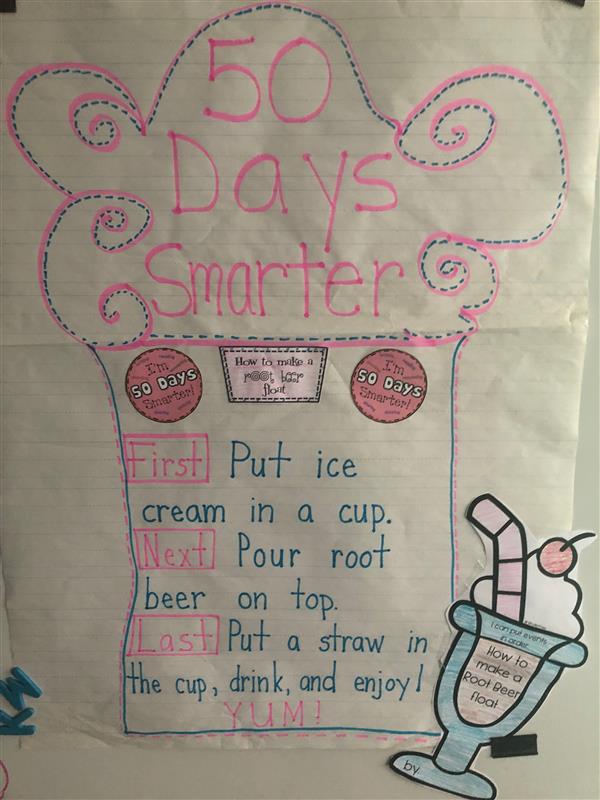 50
Days
Smarter
I'm
50 Days
Smarter!
How to make a
root beer
float
I'm
50 Days
Smarter!
First Put ice
cream in a cup.
Next Pour root
beer on top.
Last Put a straw in
the cup, drink, and enjoy!
YUM!
I can put events
in order.
How to
make a
Root Beer
float
by
KW